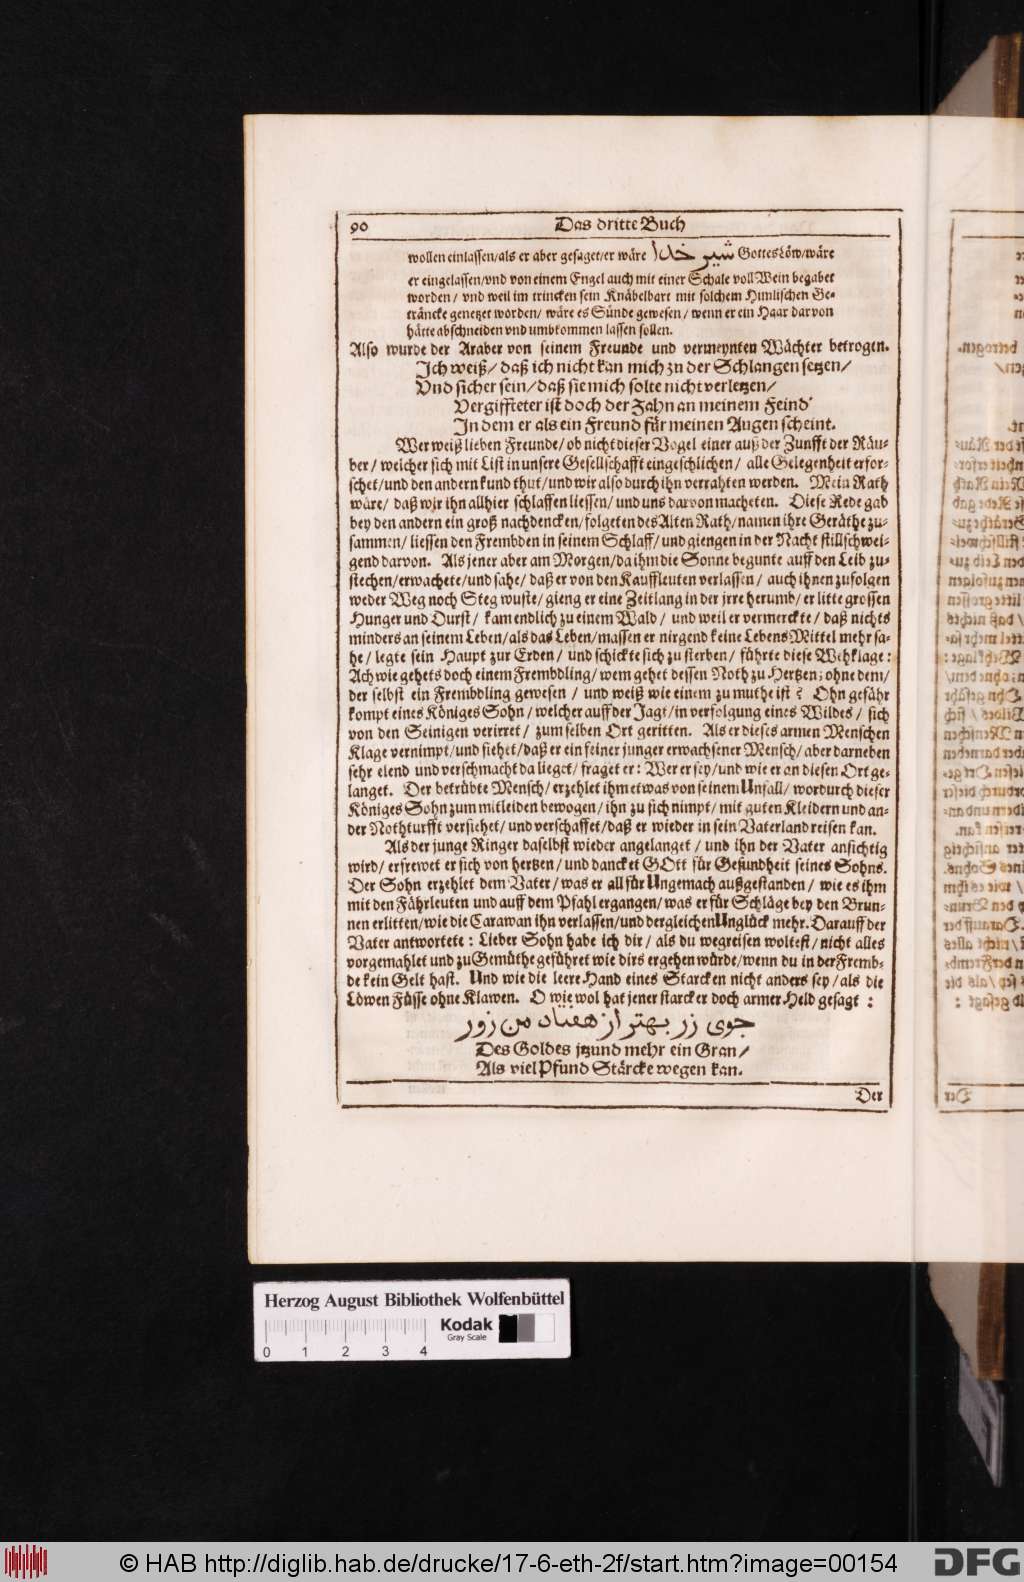 90
Das dritte Buch
wollen einlassen/als er aber gesaget/er wäre شیر خدا Gottes Löw/wäre
er eingelassen/vnd von einem Engel auch mit einer Schale voll Wein begabet
worden/ vnd weil im trincken sein Knäbelbart mit solchem Himlischen Ge-
träncke genetzet worden/ wäre es Sünde gewesen/ wenn er ein Haar darvon
hätte abschneiden vnd umbkommen lassen sollen.
Also wurde der Araber von seinem Freunde und vermeynten Wächter betrogen.
Ich weiß/ daß ich nicht kan mich zu der Schlangen setzen/
Vnd sicher sein/daß sie mich solte nicht verletzen/
Vergiffteter ist doch der Zahn an meinem Feind
In dem er als ein Freund für meinen Augen scheint.
Wer weiß lieben Freunde/ ob nicht dieser Vogel einer auß der Zunfft der Räu-
ber/ welcher sich mit List in unsere Gesellschafft eingeschlichen/ alle Gelegenheit erfor-
schet/und den andern kund thut/und wir also durch ihn verrahten werden. Mein Rath
wäre/ daß wir ihn allhier schlaffen liessen/ und uns darvon macheten. Diese Rede gab
bey den andern ein groß nachdencken/folgeten des Alten Rath/namen ihre Geräthe zu-
sammen/ liessen den Frembden in seinem Schlaff/und giengen in der Nacht stillschwei-
gend darvon. Als jener aber am Morgen/da ihm die Sonne begunte auff den Leib zu-
stechen/erwachete/und sahe/ daß er von den Kauffleuten verlassen/ auch ihnen zufolgen
weder Weg noch Steg wuste/ gieng er eine Zeitlang in der jrre herumb/ er litte grossen
Hunger und Durst/ kam endlich zu einem Wald/ und weil er vermerckte/ daß nichts
minders an seinem Leben/als das Leben/massen er nirgend keine Lebens Mittel mehr sa-
he/ legte sein Haupt zur Erden/ und schickte sich zu sterben/ führte diese Wehklage:
Ach wie gehets doch einem Frembdling/ wem gehet dessen Noth zu Hertzen; ohne dem/
der selbst ein Frembdling gewesen/ und weiß wie einem zu muthe ist? Ohn gefähr
kompt eines Königes Sohn/ welcher auff der Jagt/in verfolgung eines Wildes/ sich
von den Seinigen verirret/ zum selben Ort geritten. Als er dieses armen Menschen
Klage vernimpt/und siehet/daß er ein feiner junger erwachsener Mensch/ aber darneben
sehr elend und verschmacht da lieget/ fraget er: Wer er sey/und wie er an diesen Ort ge-
langet. Der betrübte Mensch/ erzehlet ihm etwas von seinem Unfall/ wordurch dieser
Königes Sohn zum mitleiden bewogen/ ihn zu sich nimpt/ mit guten Kleidern und an-
der Nothturfft versiehet/ und verschaffet/daß er wieder in sein Vaterland reisen kan.
Als der junge Ringer daselbst wieder angelanget/ und ihn der Vater ansichtig
wird/ erfrewet er sich von hertzen/ und dancket GOtt für Gesundheit seines Sohns.
Der Sohn erzehlet dem Vater/ was er all für Ungemach außgestanden/ wie es ihm
mit den Fährleuten und auff dem Pfahl ergangen/ was er für Schläge bey den Brun-
nen erlitten/wie die Carawan ihn verlassen/und dergleichen Unglück mehr. Darauff der
Vater antwortete: Lieber Sohn habe ich dir/ als du wegreisen woltest/ nicht alles
vorgemahlet und zu Gemüthe geführet wie dirs ergehen würde/wenn du in der Fremb-
de kein Gelt hast. Und wie die leere Hand eines Starcken nicht anders sey/als die
Löwen Füsse ohne Klawen. O wie wol hat jener starcker doch armer Held gesagt:
جوی زر بهتر از هفتاد من زور
Des Goldes jtzund mehr ein Gran/
Als viel Pfund Stärcke wegen kan.
Der
Herzog August Bibliothek Wolfenbüttel
Kodak
Gray Scale
0 1 2 3 4
© HAB http://diglib.hab.de/drucke/17-6-eth-2f/start.htm?image=00154
DFG